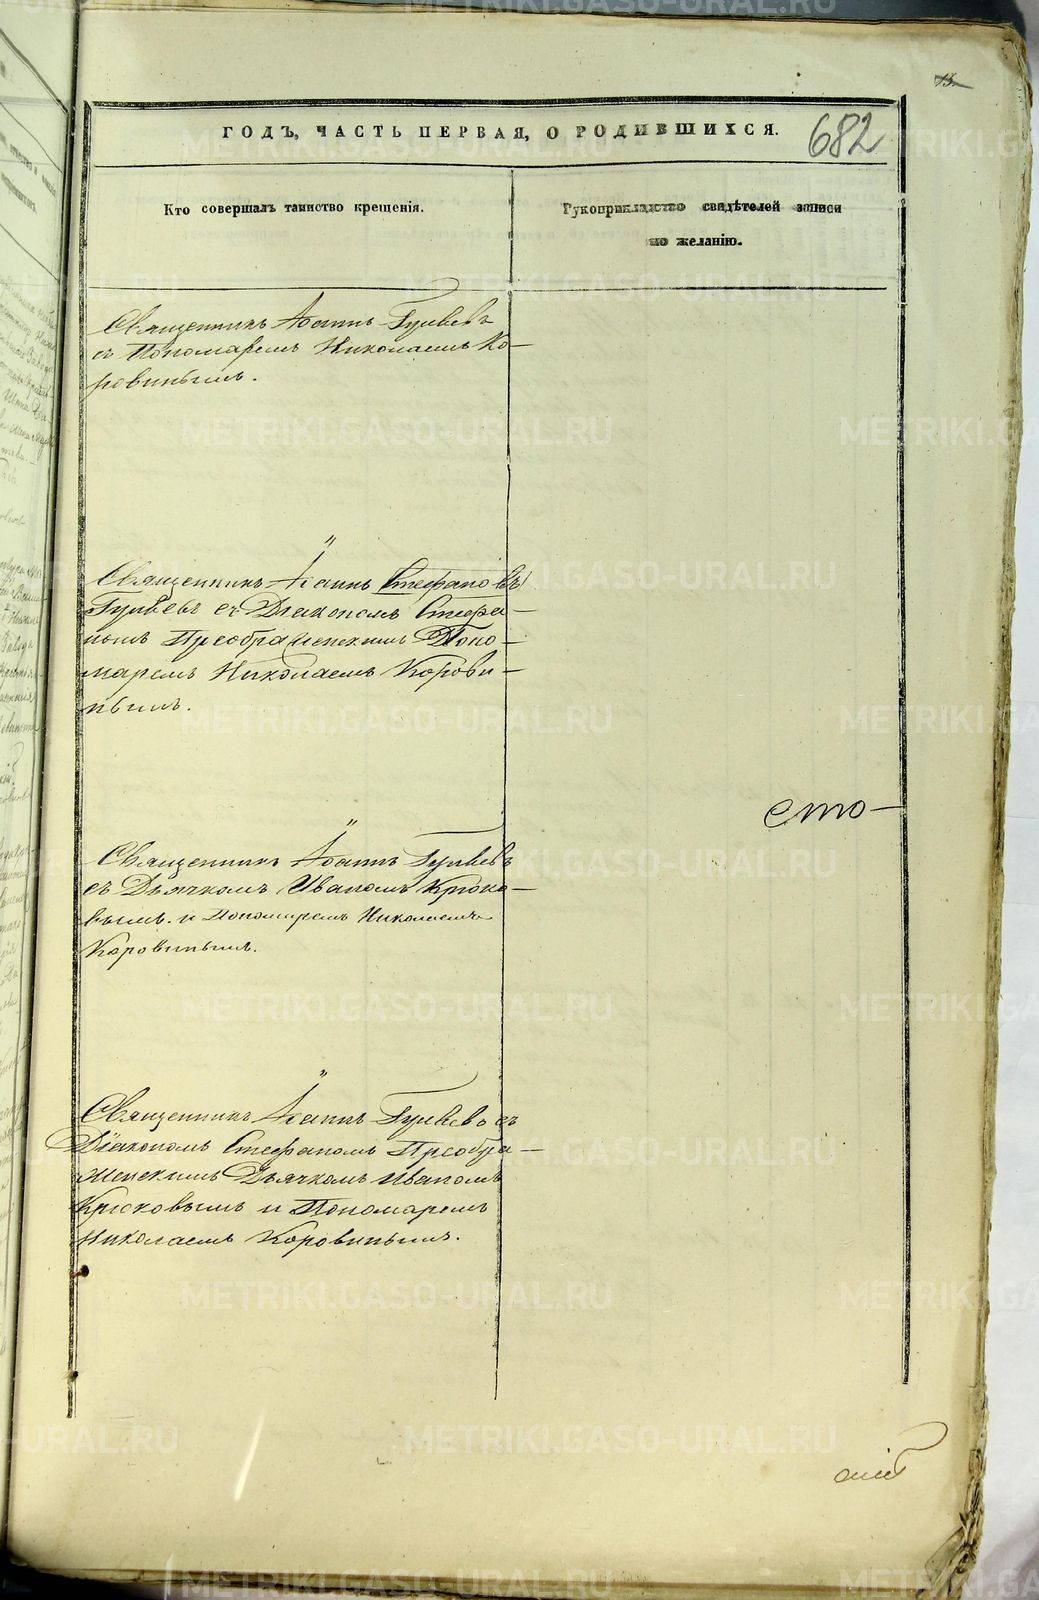 15
ГОДЪ, ЧАСТЬ ПЕРВАЯ, О РОДИВШИХСЯ.
682
Кто совершалъ таинство крещенія.
Рукоприкладство свидѣтелей записи
по желанію.
Священникъ Іоаннъ Гуляевъ
съ Пономаремъ Николаемъ Ко-
ровинымъ.
Священникъ Іоаннъ Стефановъ
Гуляевъ съ Діакономъ Стефа-
номъ Преображенскимъ Поно-
маремъ Николаемъ Корови-
нымъ.
сто-
Священникъ Іоаннъ Гуляевъ
съ Дьячкомъ Иваномъ Крюко-
вымъ и Пономаремъ Николаемъ
Коровинымъ.
Священникъ Іоаннъ Гуляевъ съ
Діакономъ Стефаномъ Преобра-
женскимъ Дьячкомъ Иваномъ
Крюковымъ и Пономаремъ
Николаемъ Коровинымъ.
METRIKI.GASO-URAL.RU